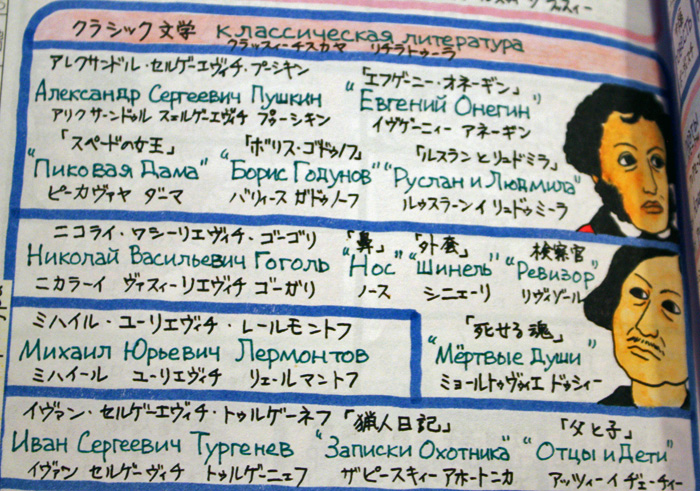 クラシック文学 классическая литература
クラッスィーチスカヤ リチラトゥーラ
アレクサンドル・セルゲーエヴィチ・プーシキン 「エフゲーニー・オネーギン」
Александр Сергеевич Пушкин "Евгений Онегин"
アリクサーンドゥル スェルゲーエヴィチ プゥーシキン イヴゲーニィー アネーギン
「スペードの女王」 「ボリス・ゴドゥノフ」 「ルスランとリュドミラ」
"Пиковая Дама" "Борис Годунов" "Руслан и Людмила"
ピーカヴァヤ ダーマ バリィース ガドゥノーフ ルゥスラーン イ リュドゥミーラ
ニコライ・ワシーリエヴィチ・ゴーゴリ 「鼻」 「外套」 検察官
Николай Васильевич Гоголь "Нос" "Шинель" "Ревизор"
ニカラーイ ヴァスィーリエヴィチ ゴーガリ ノース シニェーリ リヴィゾール
ミハイル・ユーリエヴィチ・レールモントフ 「死せる魂」
Михаил Юрьевич Лермонтов "Мёртвые Души"
ミハイール ユーリエヴィチ リェールマントフ ミョールトゥヴィエ ドゥシー
イヴァン・セルゲーエヴィチ・トゥルゲーネフ 「猟人日記」 「父と子」
Иван Сергеевич Тургенев "Записки Охотника" "Отцы и Дети"
イヴァン セルゲーヴィチ トゥルゲーニェフ ザピースキィー アホートニカ アッツィー イ ヂェーチィー